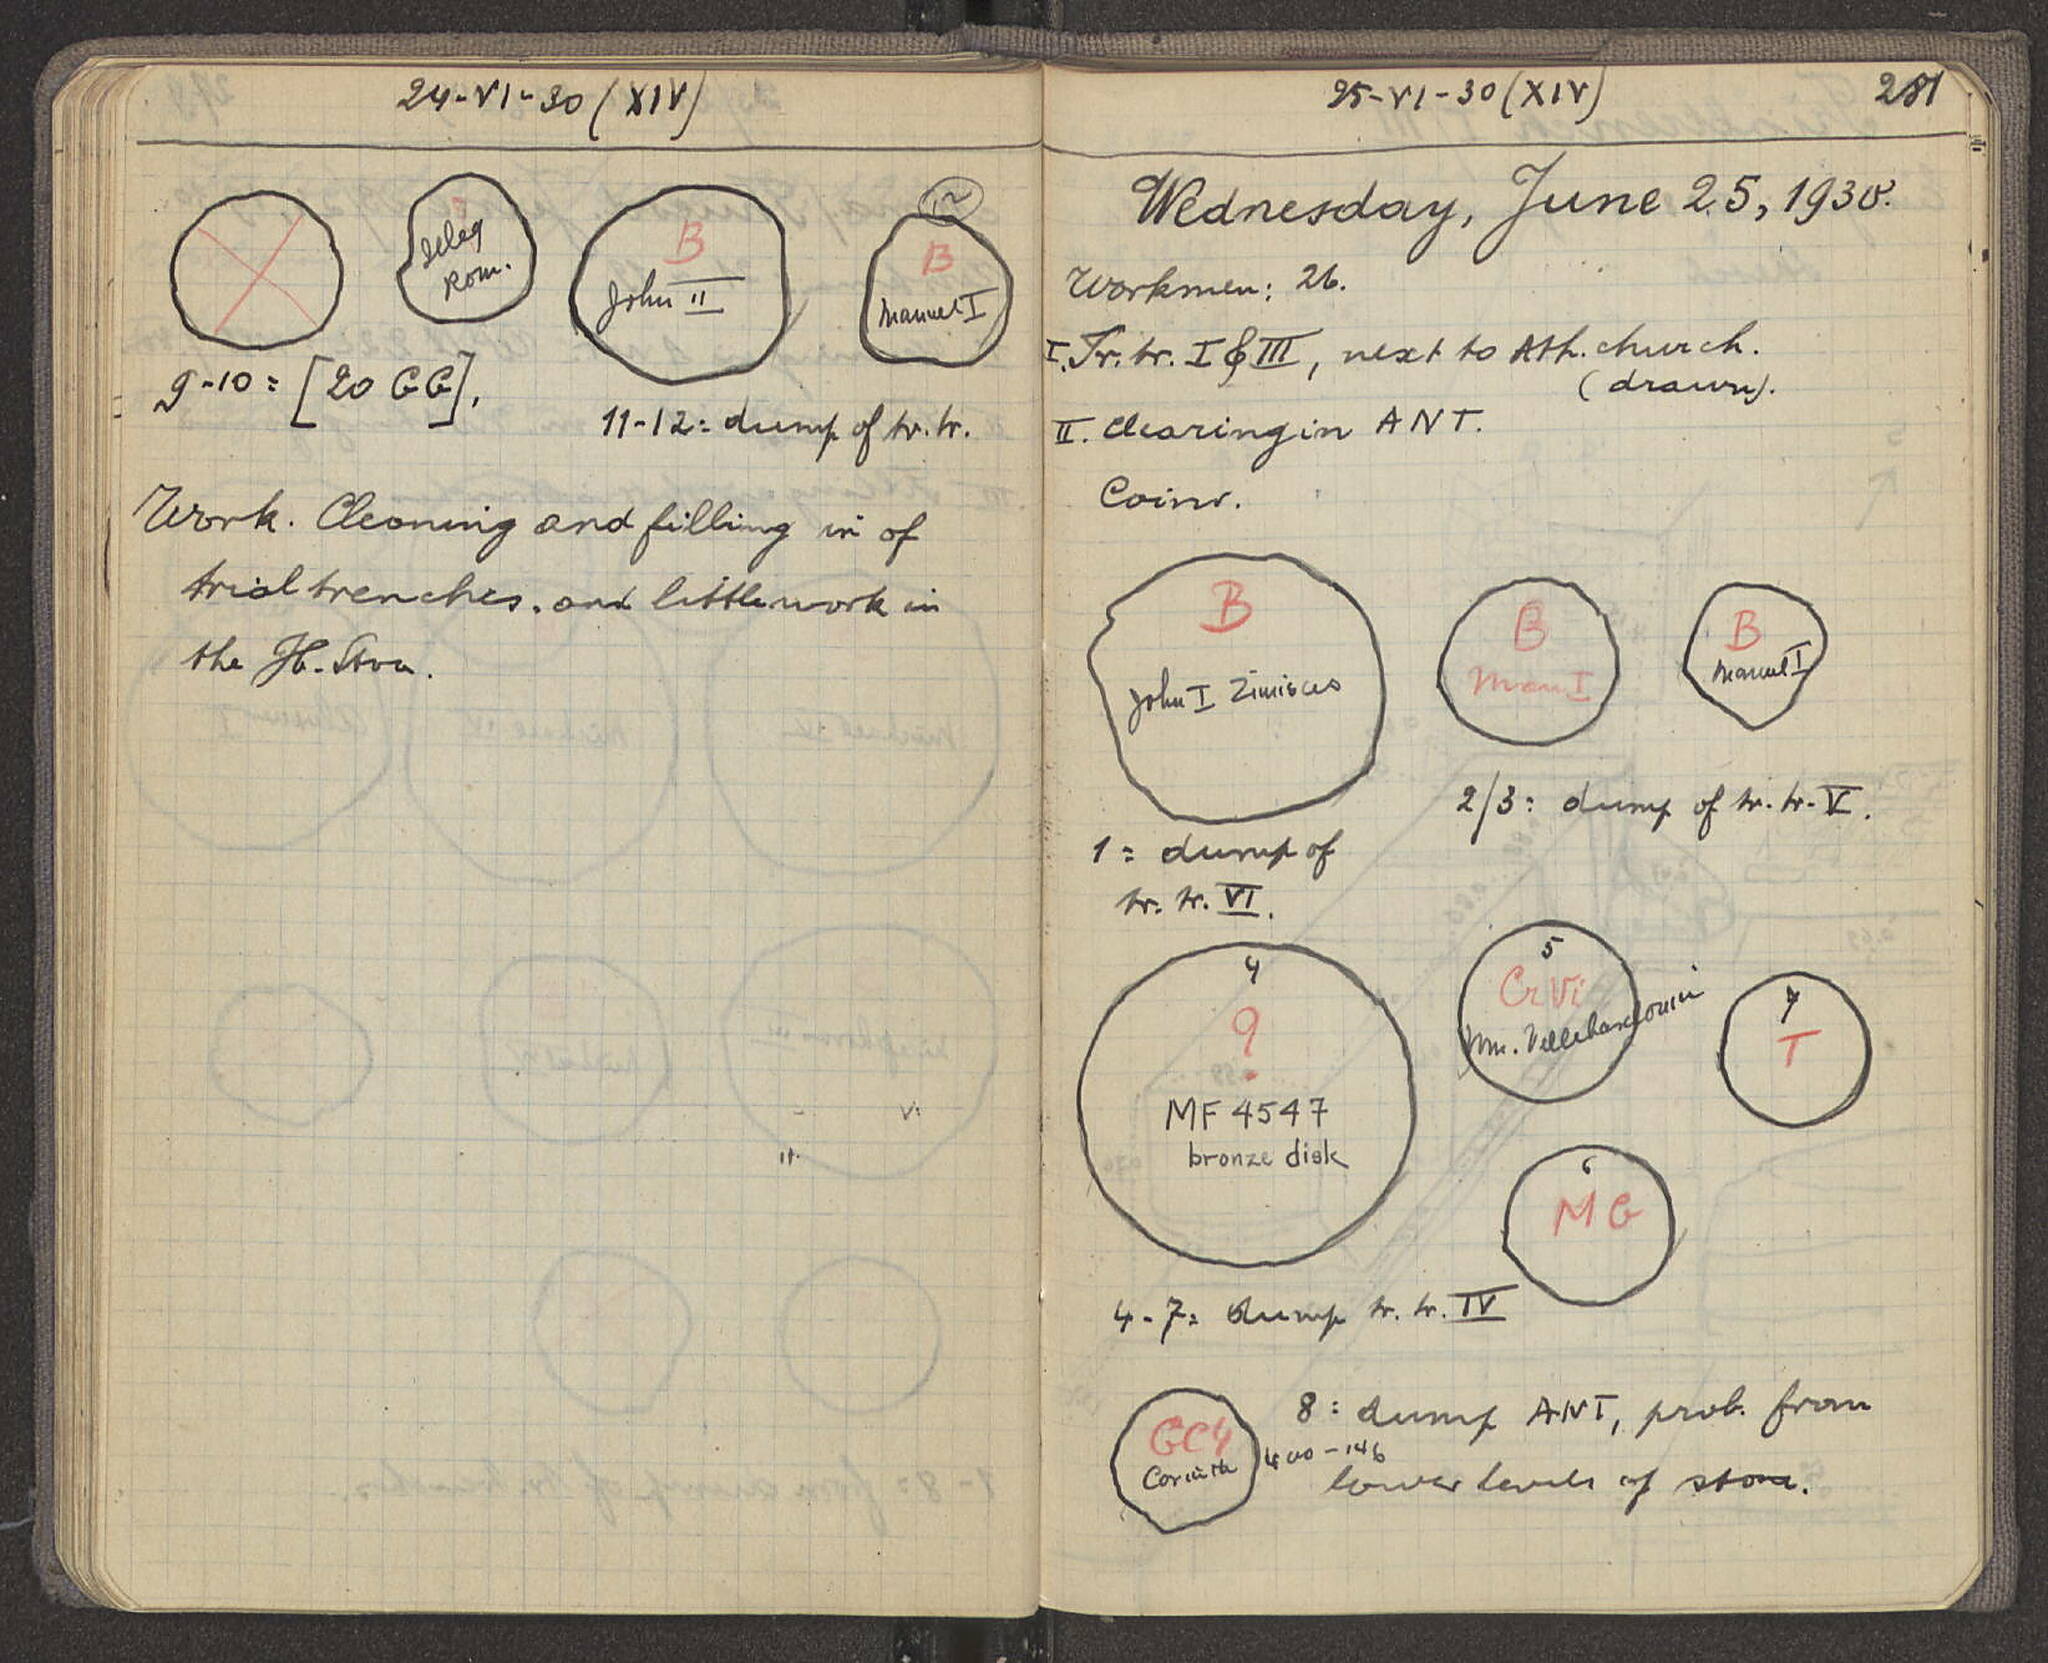 24-VI-30 (XIV)
Illeg
Rom.
B
John II
12
B
Manuel I
9-10 = [20 GG].
11-12 = dump of tr. tr.
Work. Cleaning and filling in of
trial trenches. and little work in
the H. Stoa.
25-VI-30 (XIV)
281
Wednesday, June 25, 1930.
Workmen: 26.
I. Tr. tr. I & III, next to Ath. church.
(drawn).
II. Clearing in ANT.
Coins.
B
John I Zimisces
B
Man I
B
Manuel I
2/3 = dump of tr. tr. V.
1 = dump of
tr. tr. VI.
4
?
MF 4547
bronze disk
5
CrVi
Wm. Villehardouin
7
T
6
MG
4-7 = dump tr. tr. IV
GC4
Corinth
400-146
8 = dump ANT, prob. from
lower levels of stoa.